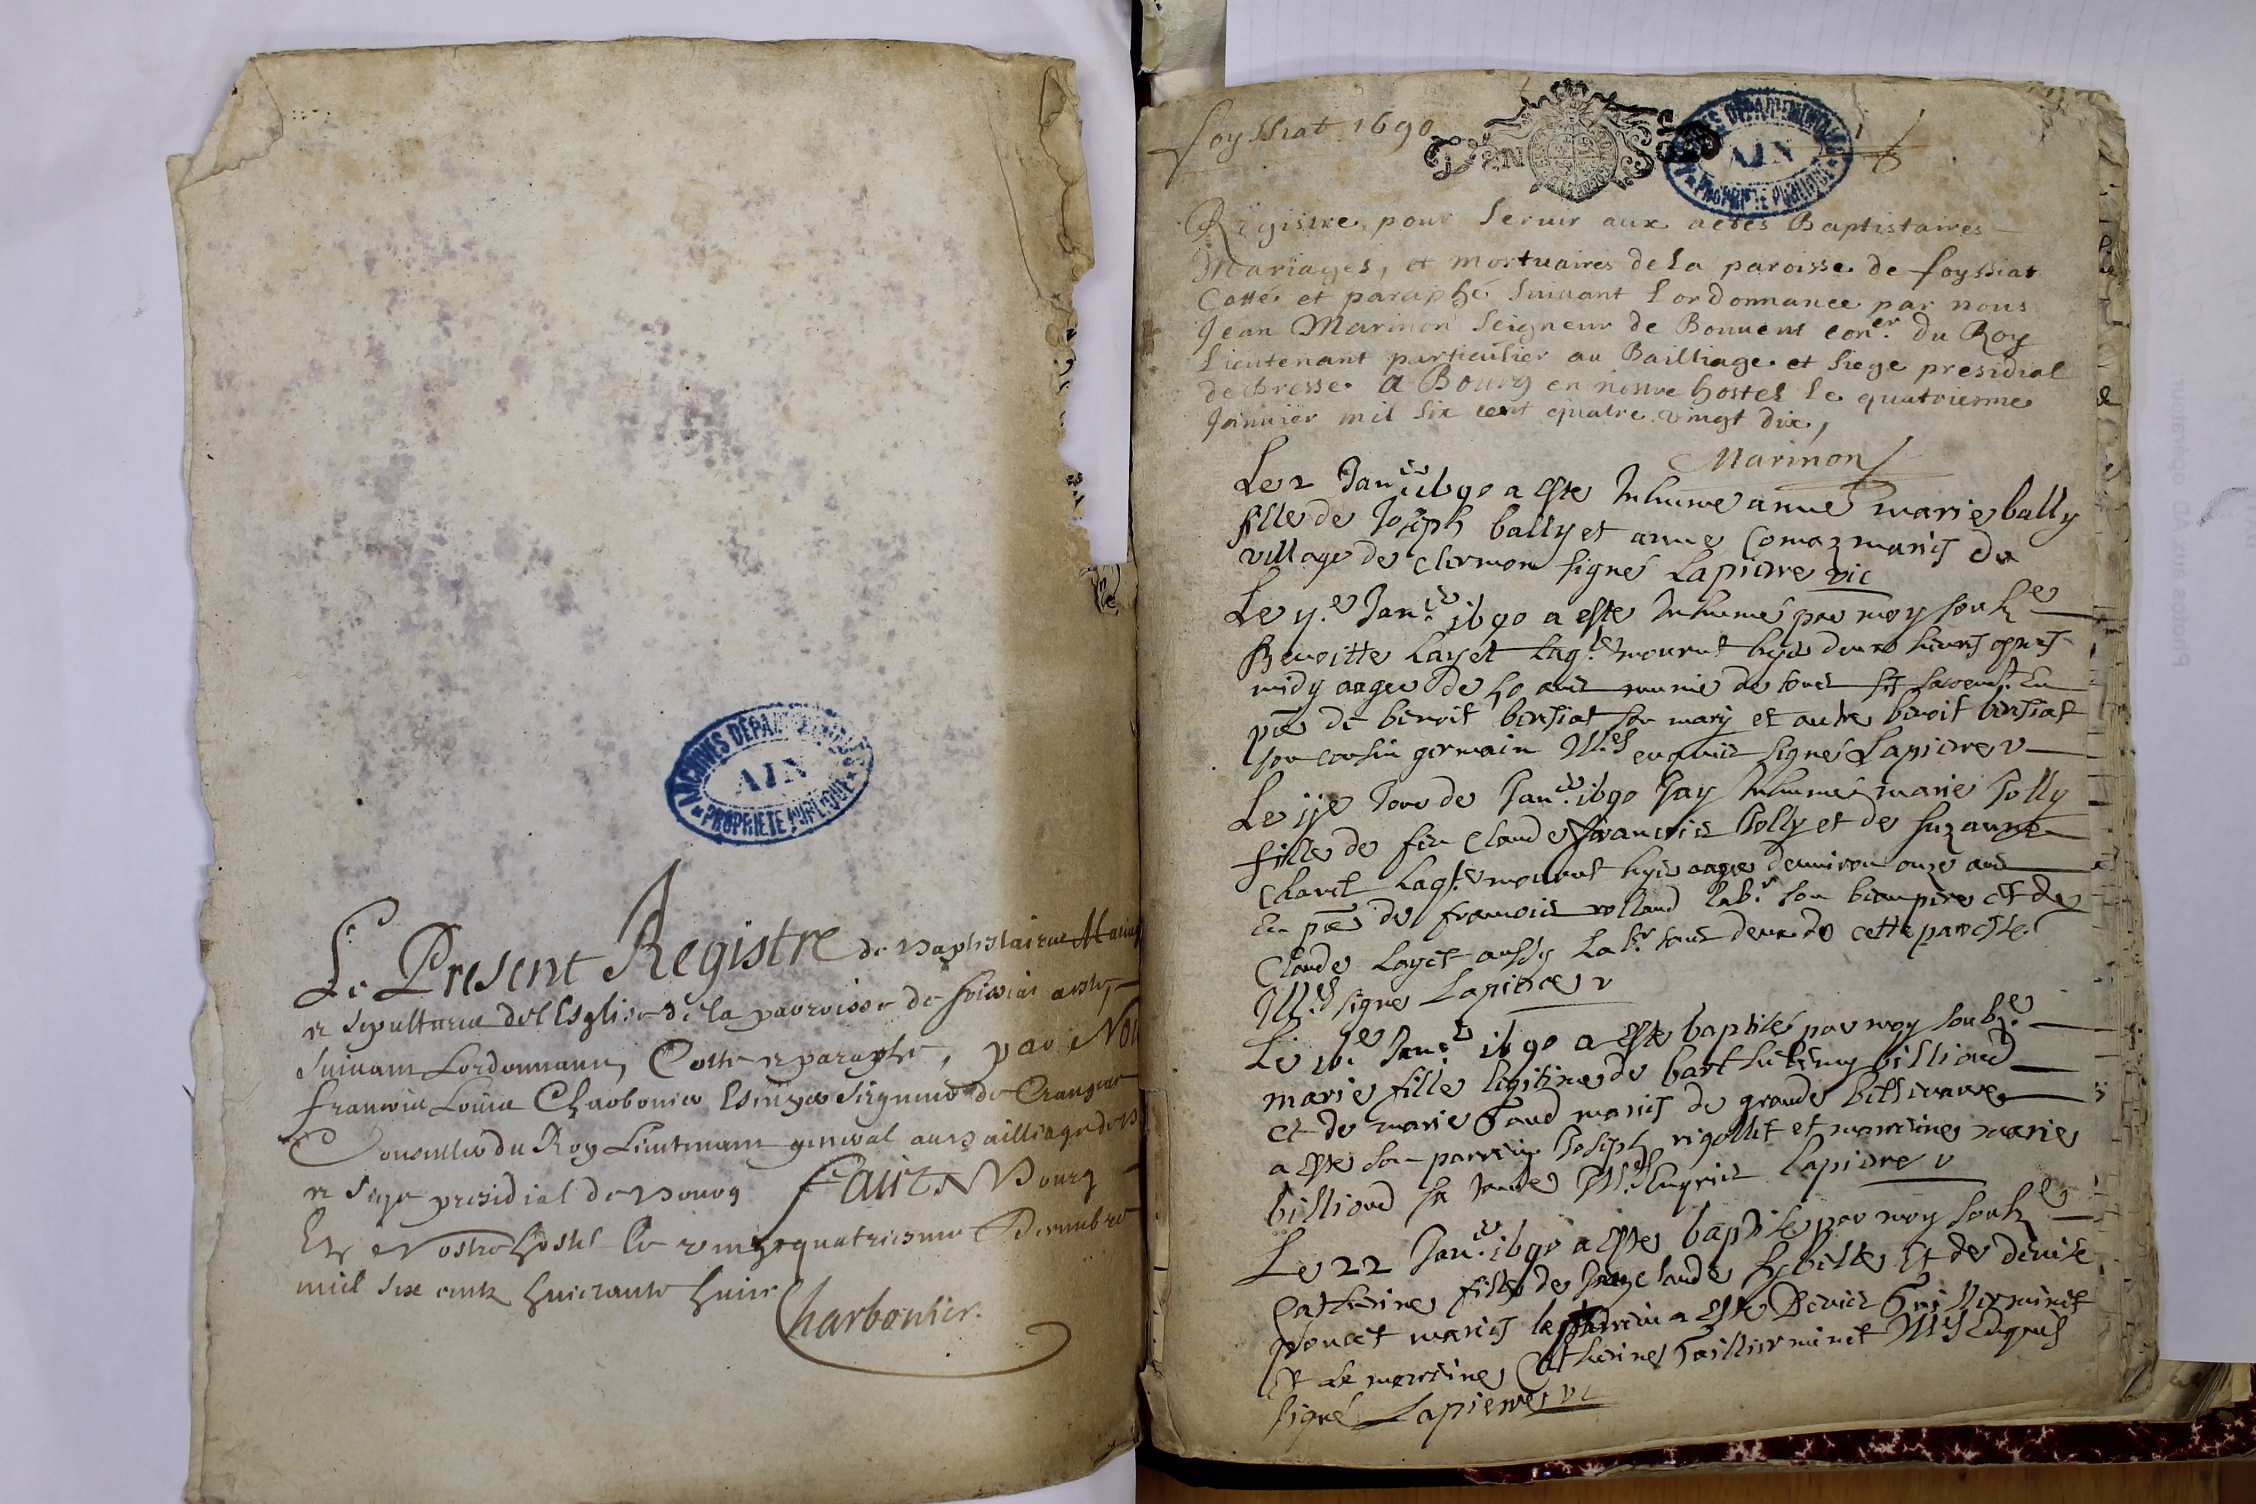 ARCHIVES DÉPARTEMENTALES
AIN
* PROPRIÉTÉ PUBLIQUE *
Le Present Registre de Baptistaire Mariag
et sepulture del Esglise de la parroisse de
Suivant Lordonnance Cotté et paraphé, par Nou
Francois Louis Charbonier Escuyer Seigneur de Crangeac
Conseiller du Roy Lieutenant general au Bailliage de
et Siege presidial de Bourg Fait a Bourg
En Nostre hostel le vingt quatriesme Decembre
mil six centz huictante huict
Charbonier.
foyssiat 1690
ARCHIVES DÉPARTEMENTALES
AIN
* PROPRIÉTÉ PUBLIQUE *
Registre pour servir aux actes Baptistaires
Mariages, et mortuaires de la paroisse de foyssiat
Cotté et paraphé suivant l ordonnance par nous
Jean Marinon Seigneur de Bonuent coner. du Roy
Lieutenant particulier au Bailliage et siege presidial
de Bresse. a Bourg en nostre hostel le quatrieme
Januier mil six cent quatre vingt dix,
Marinon
Le 2 Janer 1690 a este Inhumé anne marie bally
fille de Joseph bally et anne Comaz mariés du
village de Clermon signé Lapierre vic
Le Janer 1690 a este Inhumé par moy soubz
Benoitte Layet laqle mourut hyer heures apres
midy aagee de ans munie de tous Sts sacremts En
pce de benoit bersiat son mary et autre benoit bersiat
son cousin germain Illes enquis signé Lapierre v
Le jour de Janer 1690 Jay Inhumé marie Jolly
fille de feu Claude francois Jolly et de suzanne
Charet laqle mourut hyer aagee denuiron onze ans
En pce de francois rolland labr. son beaupere et de
Claude Layet aussy labr. tous deux de cette paroisse
Illes signé Lapierre v
Le Janer 1690 a este baptisé par moy soubz
marie fille legitime de barthelemy billioud
et de marie mariés de grande
a este son parrein Joseph rigollet et marreine marie
billioud sa tante Illes Enquis Lapierre v
Le 22 Janer 1690 a este baptisé par moy soubz
Catherine fille de Claude et de denise
mariés le parrein a este Denis Guillerminet
et La marreine Catherine Guillerminet Illes Enquis
signé Lapierre vic